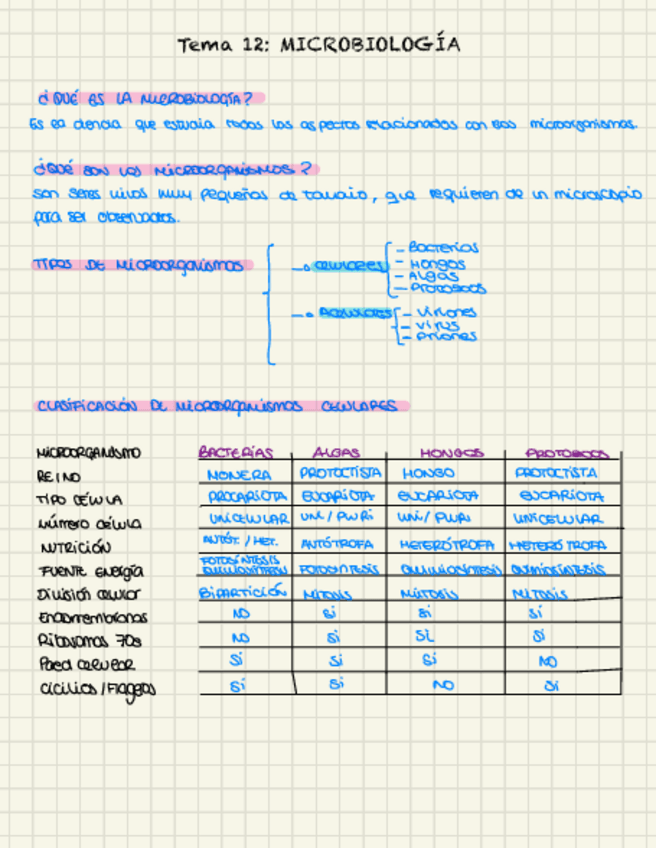 Tema 12: MICROBIOLOGÍA
¿QUÉ ES LA MICROBIOLOGÍA?
Es la ciencia que estudia todos los aspectos relacionados con los microorganismos.
¿QUÉ SON LOS MICROORGANISMOS?
Son seres vivos muy pequeños de tamaño, que requieren de un microscopio
para ser observados.
TIPOS DE MICROORGANISMOS
CELULARES
- Bacterias
- Hongos
- Algas
- Protozoos
ACELULARES
- Viriones
- Virus
- Priones
CLASIFICACIÓN DE MICROORGANISMOS CELULARES
MICROORGANISMO BACTERIAS ALGAS HONGOS PROTOZOOS
REINO MONERA PROTOCTISTA HONGO PROTOCTISTA
TIPO CÉLULA PROCARIOTA EUCARIOTA EUCARIOTA EUCARIOTA
NÚMERO CÉLULA UNICELULAR UNI/PLURI UNI/PLURI UNICELULAR
NUTRICIÓN AUTÓT. / HET. AUTÓTROFA HETERÓTROFA HETERÓTROFA
FUENTE ENERGÍA FOTOSÍNTESIS QUIMIOSÍNTESIS FOTOSÍNTESIS QUIMIOSÍNTESIS QUIMIOSÍNTESIS
División celular BIPARTICIÓN MITOSIS MITOSIS MITOSIS
Endomembranas NO SÍ SÍ SÍ
Ribosomas 70s NO SÍ SÍ SÍ
Pared celular SÍ SÍ SÍ NO
Cicilios / Flagelos SÍ SÍ NO SÍ